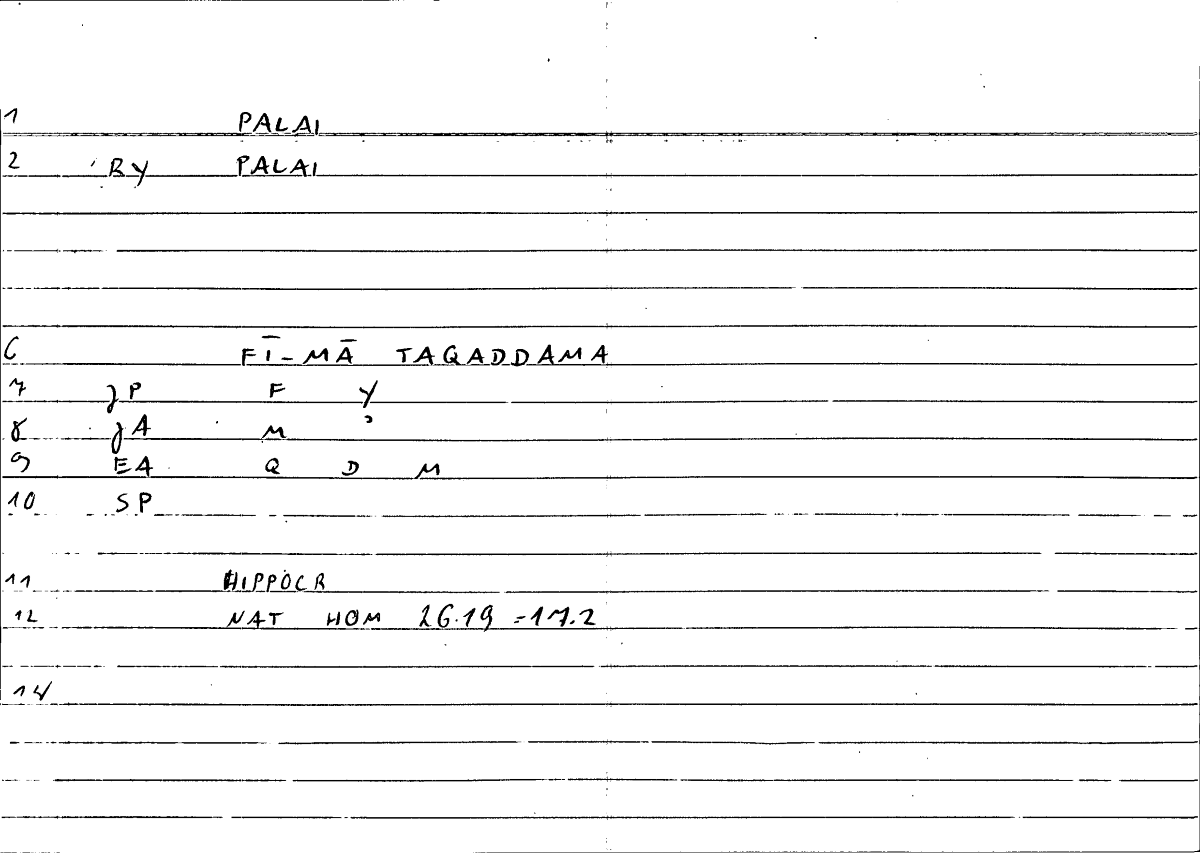 1 PALAI
2 RY PALAI
6 FĪ-MĀ TAQADDAMA
7 JP F Y
8 JA M ʾ
9 EA Q D M
10 SP
11 HIPPOCR
12 NAT HOM 26.19 = 17.2
14